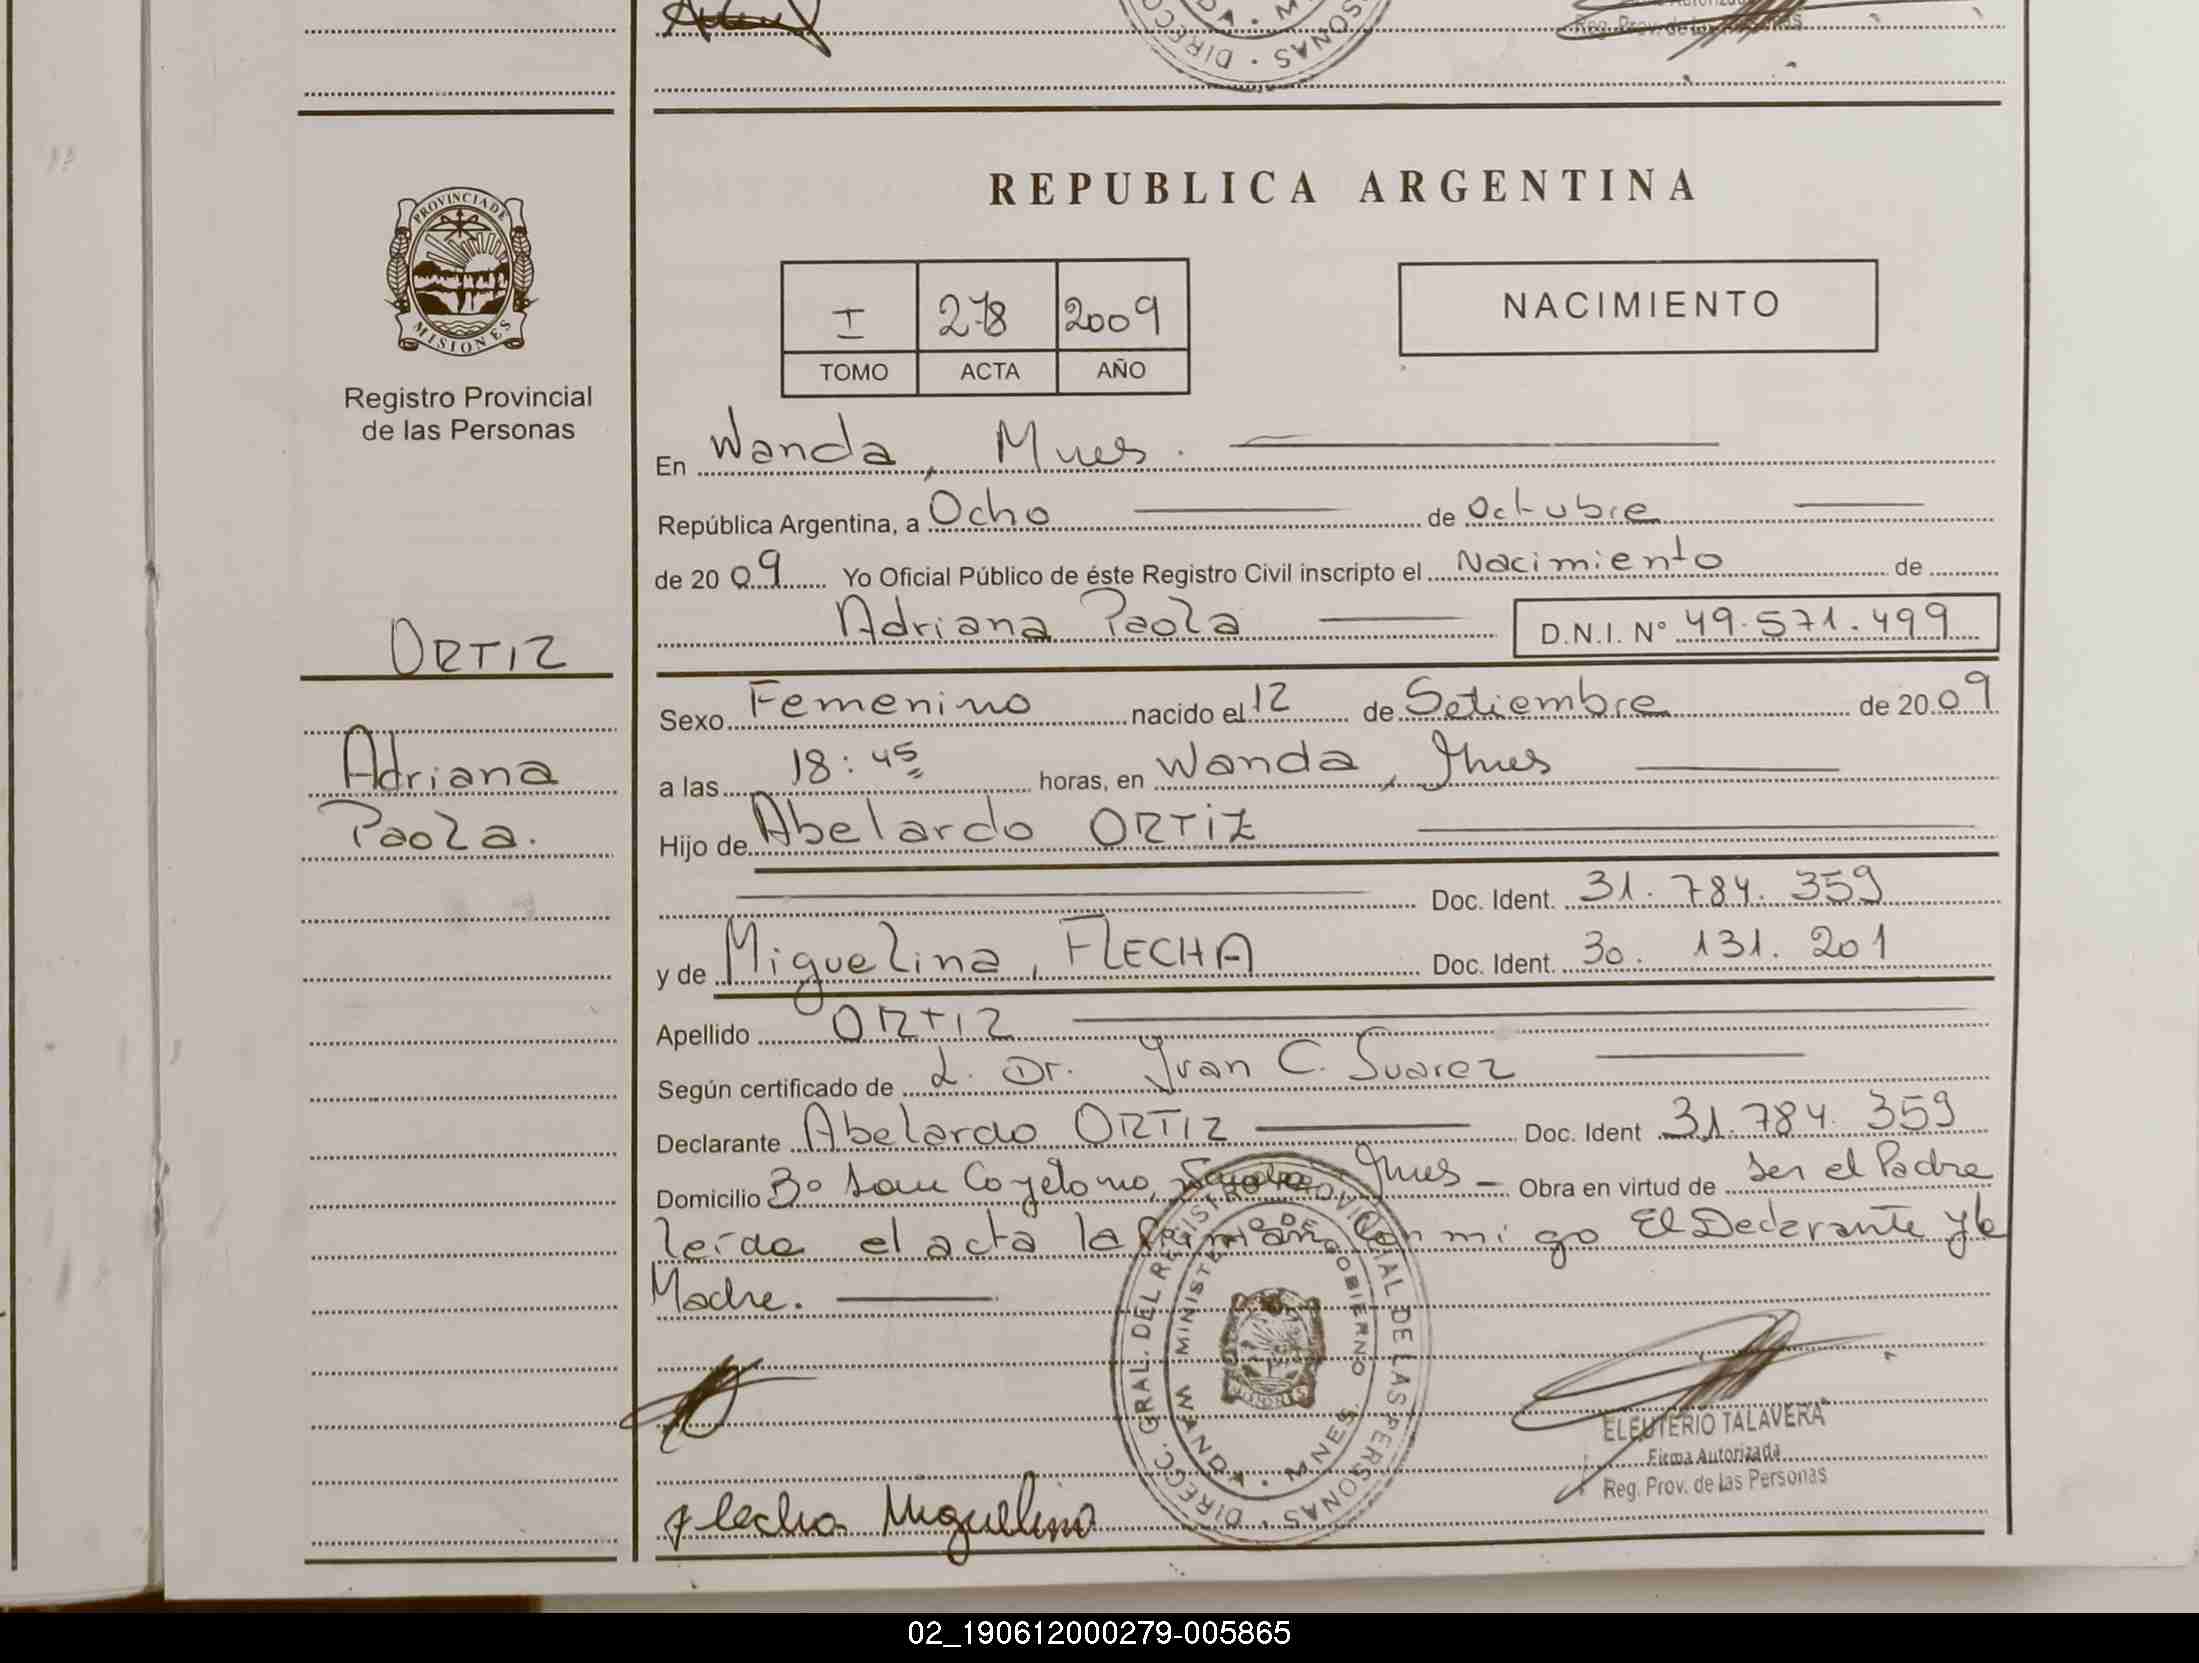 Reg. Prov. de las Personas
DIRECC
SONAS
REPUBLICA ARGENTINA
PROVINCIA DE
MISIONES
Registro Provincial
de las Personas
I 278 2009
TOMO ACTA AÑO
NACIMIENTO
En Wanda, Mnes.
República Argentina, a Ocho de Octubre
de 2009 Yo Oficial Público de éste Registro Civil inscripto el Nacimiento de
Adriana Paola D.N.I. N° 49.571.499
ORTIZ
Adriana
Paola.
Sexo Femenino nacido el 12 de Setiembre de 2009
a las 18:45 horas, en Wanda, Mnes
Hijo de Abelardo ORTIZ
Doc. Ident. 31.784.359
y de Miguelina, FLECHA Doc. Ident. 30.131.201
Apellido ORTIZ
Según certificado de L. Dr. Ivan C. Suarez
Declarante Abelardo ORTIZ Doc. Ident 31.784.359
Domicilio B° San Cayetano, Wanda Mnes - Obra en virtud de ser el Padre
leída el acta la firman con migo El Declarante y la
Madre.
DIRECC. GRAL. DEL REGISTRO PROVINCIAL DE LAS PERSONAS
MINISTERIO DE GOBIERNO
WANDA · MNES.
ELEUTERIO TALAVERA
Firma Autorizada
Reg. Prov. de las Personas
Flecha Miguelina
02_190612000279-005865